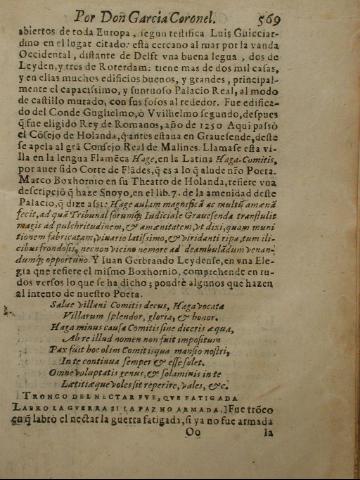 Por Don Garcia Coronel. 569
abiertos de toda Europa, segun testifica Luis Guicciar-
dino en el lugar citado: esta cercano al mar por la vanda
Occidental, distante de Delft vna buena legua, dos de
Leyden, y tres de Roterdam: tiene mas de dos mil casas,
y en ellas muchos edificios buenos, y grandes, principal-
mente el capacissimo, y suntuoso Palacio Real, al modo
de castillo murado, con sus fosos al rededor. Fue edifica-
do del Conde Guglielmo, ò Vvilhelmo segundo, despues
q̃ fue eligido Rey de Romanos, año de 1250 Aqui passò
el Cõsejo de Holanda, q̃ antes estaua en Grauesende, deste
se apela al grã Consejo Real de Malines. Llamase esta vi-
lla en la lengua Flamẽca Hage, en la Latina Haga-Comitis,
por auer sido Corte de Flãdes, q̃ es a lo q̃ alude nr̃o Poeta.
Marco Boxhornio en su Theatro de Holanda, refiere vna
descripciõ q̃ haze Snoyo, en el lib. 7. de la amenidad deste
Palacio, q̃ dize assi: Hage aulam magnificã ac multis amæná
fecit, ad quã Tribunal forumq; Iudiciale Grauesenda transtulit
magis ad pulchritudinem, & amænitatem, vt dixi, quam muni
tionem fabricatam, viuario latissimo, & viridanti ripa, tum ili-
cibus frondosis, necnon vicino nemore ad deambulãdum venan-
dumq; opportuno. Y Iuan Gerbrando Leydense, en vna Ele-
gia que refiere el mismo Boxhornio, comprehende en ru-
dos versos lo que se ha dicho; pondrè algunos que hazen
al intento de nuestro Poeta.
Salue villani Comitis decus, Haga vocata
Villarum splendor, gloria, & honor.
Haga minus causa Comitis sine diceris æqua,
Ab re illud nomen non fuit impositum
Pax fuit hoc olim Comitisqua mansio nostri,
In te continua semper & esse solet.
Omne voluptatis genus, & solaminis in te
Lætitiæque voles sit reperire, vales, &c.
[TRONCO DEL NECTAR FVE, QVE FATIGADA
LABRO LA GVERRA SI LA PAZ NO ARMADA.] Fue trõco
en q̃ labrò el nectar la guerra fatigada, si ya no fue armada
Oo la